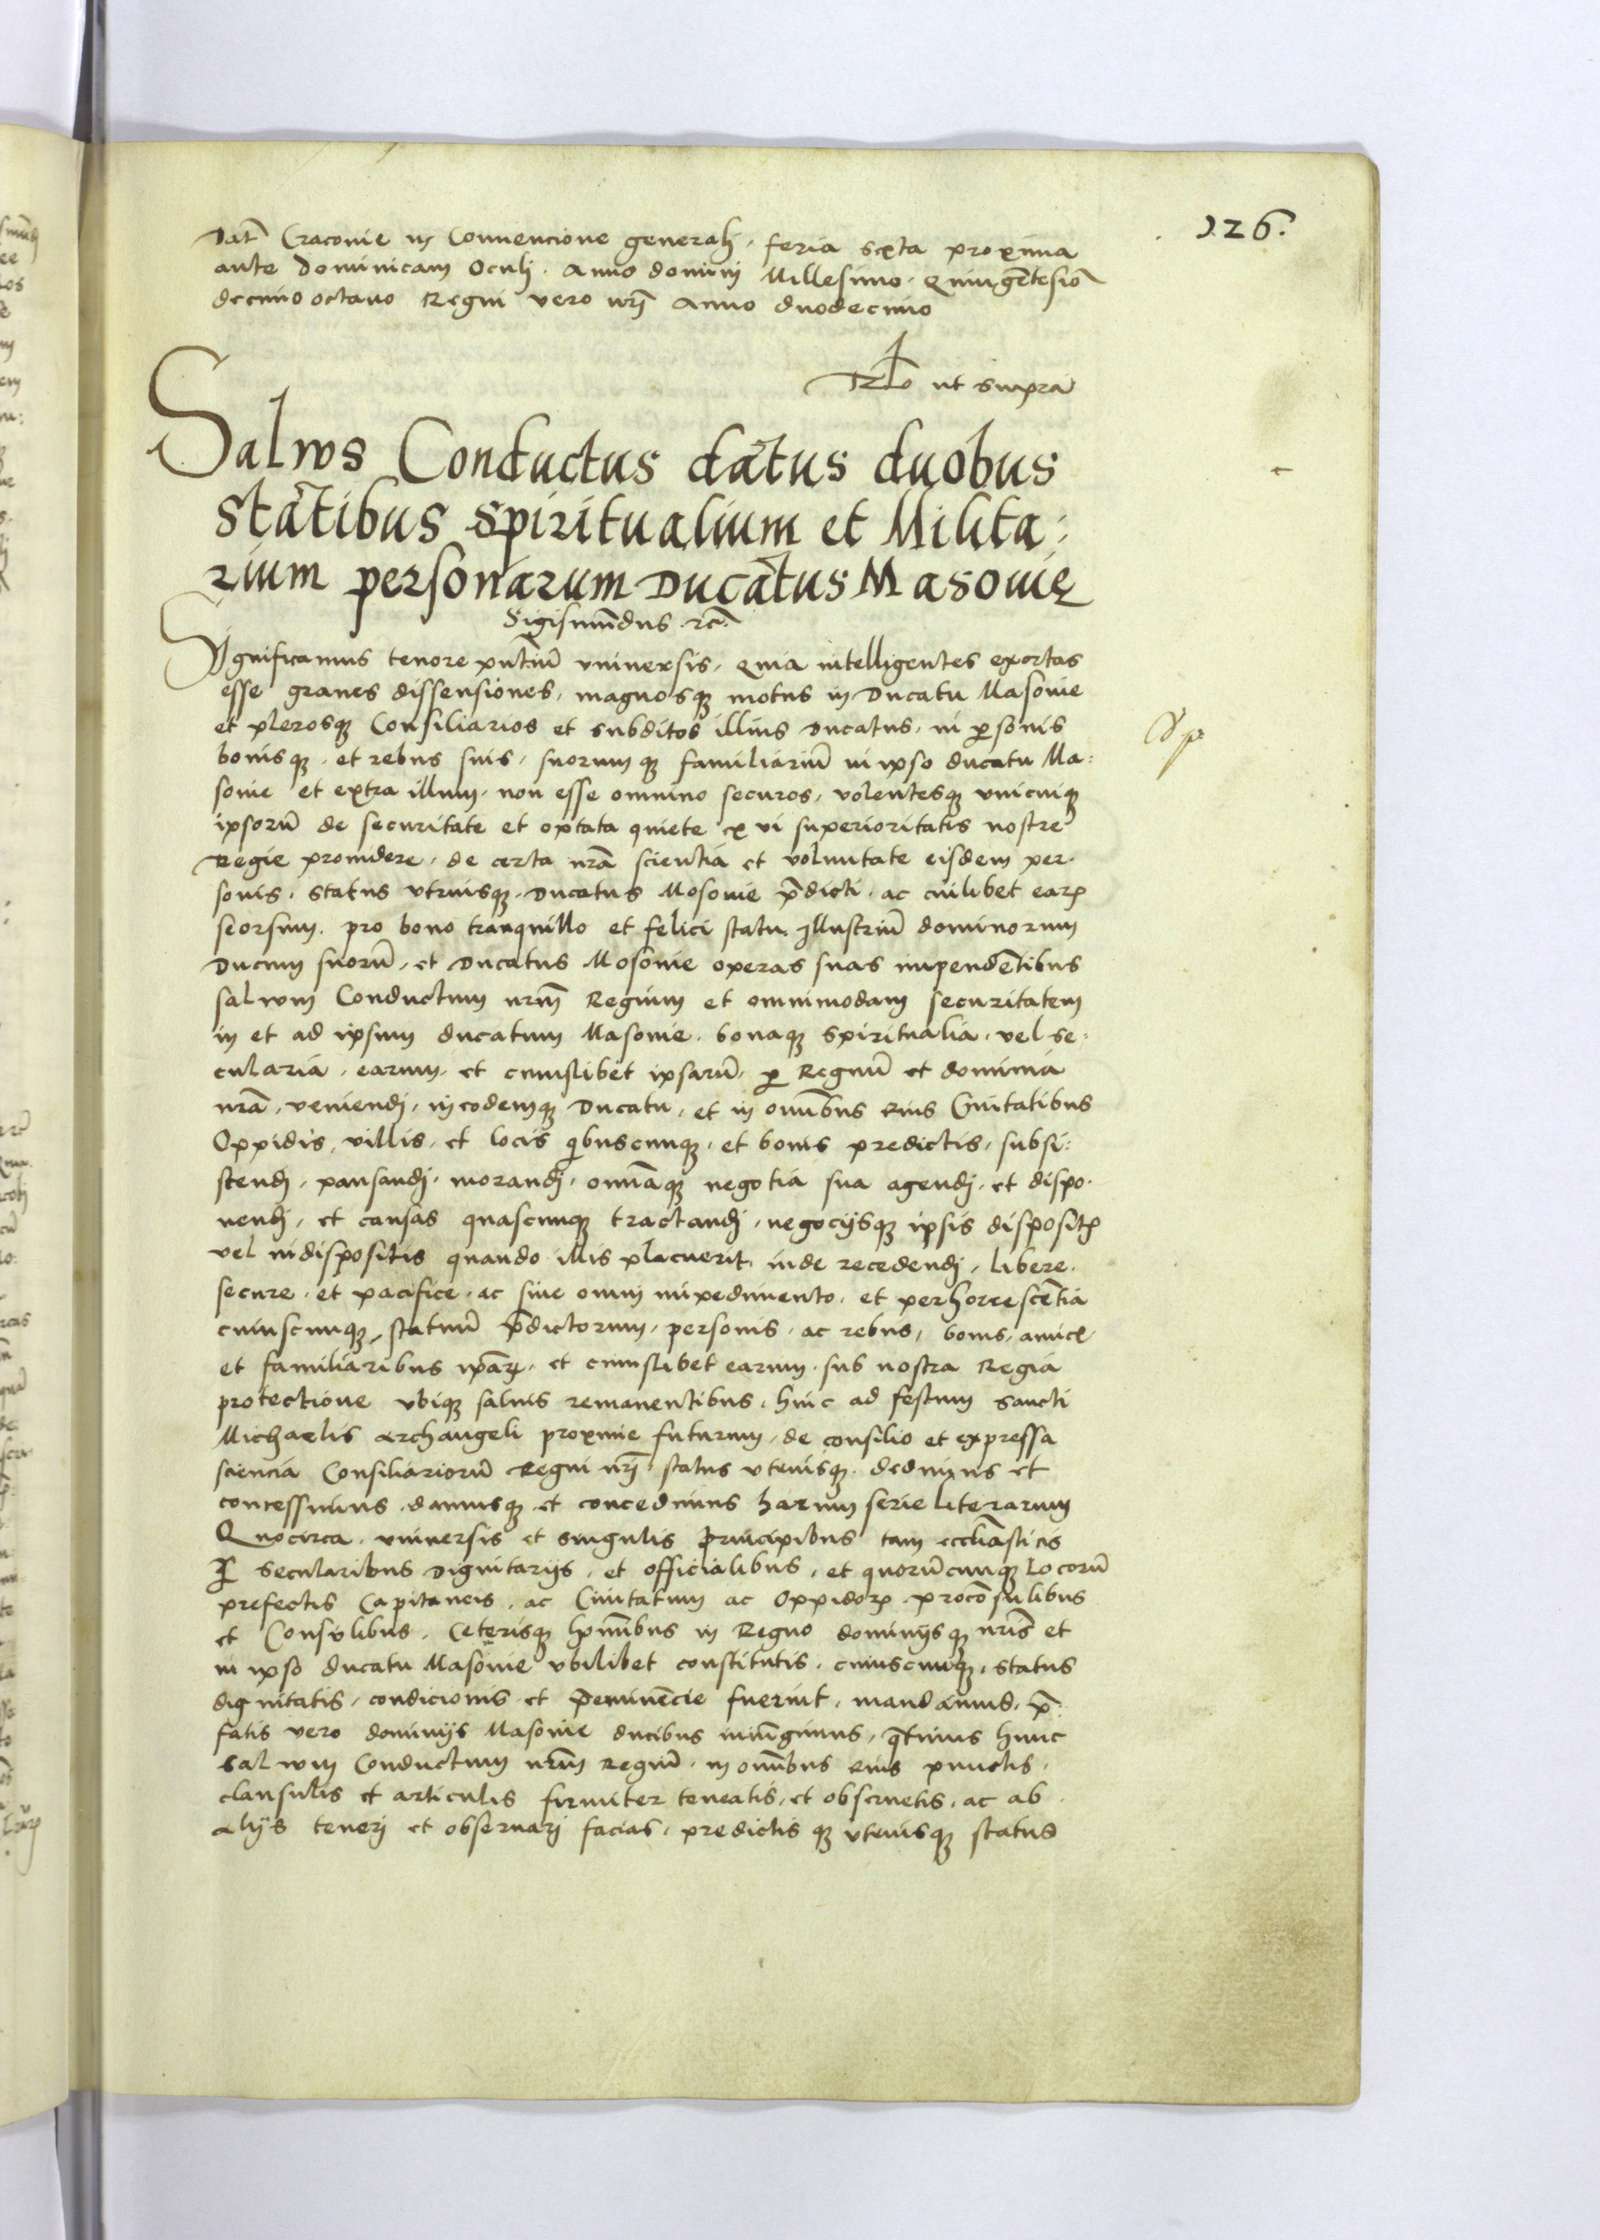 126.
Dat̄ Cracovie in Convencione generali, feria sexta proxima
ante Dominicam Oculi. Anno domini Millesimo. Quingētesiō
decimo octavo Regni vero nr̄i Anno duodecimo
Rlo ut supra
Salvvs Conductus datus duobus
statibus spiritualium et Milita:
rium personarum Ducatus Masovię
Sigismūdus. rc̄.
Significamus tenore pn̄tiū vniuersis, quia intelligentes exortas
esse graues dissensiones, magnosq motus in Ducatu Masovie
et plerosq Consiliarios et subditos illius Ducatus, in p̱sonis
bonisq, et rebus suis, suorumq familiariū in ipso ducatu Ma:
sovie et extra illum, non esse omnino securos, volentesq vnicuiq
ipsorū de securitate et optata quiete ex vi superioritatis nostre
Regie prouidere, de certa nr̄a scientia et voluntate eisdem per.
sonis, status vtriusq, Ducatus Mosovie p̄dicti, ac cuilibet earꝝ
seorsum, pro bono tranquillo et felici statu Illustriū dominorum
Ducum suorū, et Ducatus Mosovie operas suas impendētibus
salvum Conductum nr̄um Regium et omnimodam securitatem
in et ad ipsum ducatum Masovie, bonaq spiritualia, vel se:
cularia, earum, et cuiuslibet ipsarū, p̱ Regnū et dominia
nr̄a, veniendi, in eodemq Ducatu, et in omībus eius Ciuitatibus
Oppidis, villis, et locis qibuscunq, et bonis predictis, subsi:
stendi, pausandi, morandi, omīaq negotia sua agendi, et dispo.
nendi, et causas quascunq tractandi, negocijsq ipsis dispositꝭ
vel indispositis quando illis placuerit, inde recedendi, libere.
secure, et pacifice, ac sine omni impedimento, et perhorrescētia
cuiuscunq, statuū p̄dictorum, personis, ac rebus, bonis, amicꝭ
et familiaribus ip̄arꝝ, et cuiuslibet earum, sub nostra Regia
protectione vbiq saluis remanentibus, hinc ad festum sancti
Michaelis Archangeli proxime futurum, de consilio et expressa
sciencia Consiliariorū Regni nr̄i, status vtriusq, dedimus et
concessimus, damusq et concedimus harum serie literarum
Quocirca, vniuersis et singulis principibus tam eccl̄iasticis
q̄ secularibus Dignitarijs, et officialibus, et quorūcunq Locorū
prefectis Capitaneis, ac Ciuitatum ac Oppidorꝝ proconsulibus
et Consulibus, Ceterisq ho͞mibus in Regno dominijsq nr̄is et
in ipso ducatu Masovie vbilibet constitutis, cuiuscunq, status
dignitatis, condicionis et p̄eminēcie fuerint, mandamus, p̄
fatis vero dominijs Masovie ducibus iniūgimus, q̄tenus hunc
salvum Conductum nr̄um Regiū, in omībus eius punctis,
clausulis et articulis firmiter teneatis, et obseruetis, ac ab
alijs teneri et obseruari facias, predictisq vtriusq status